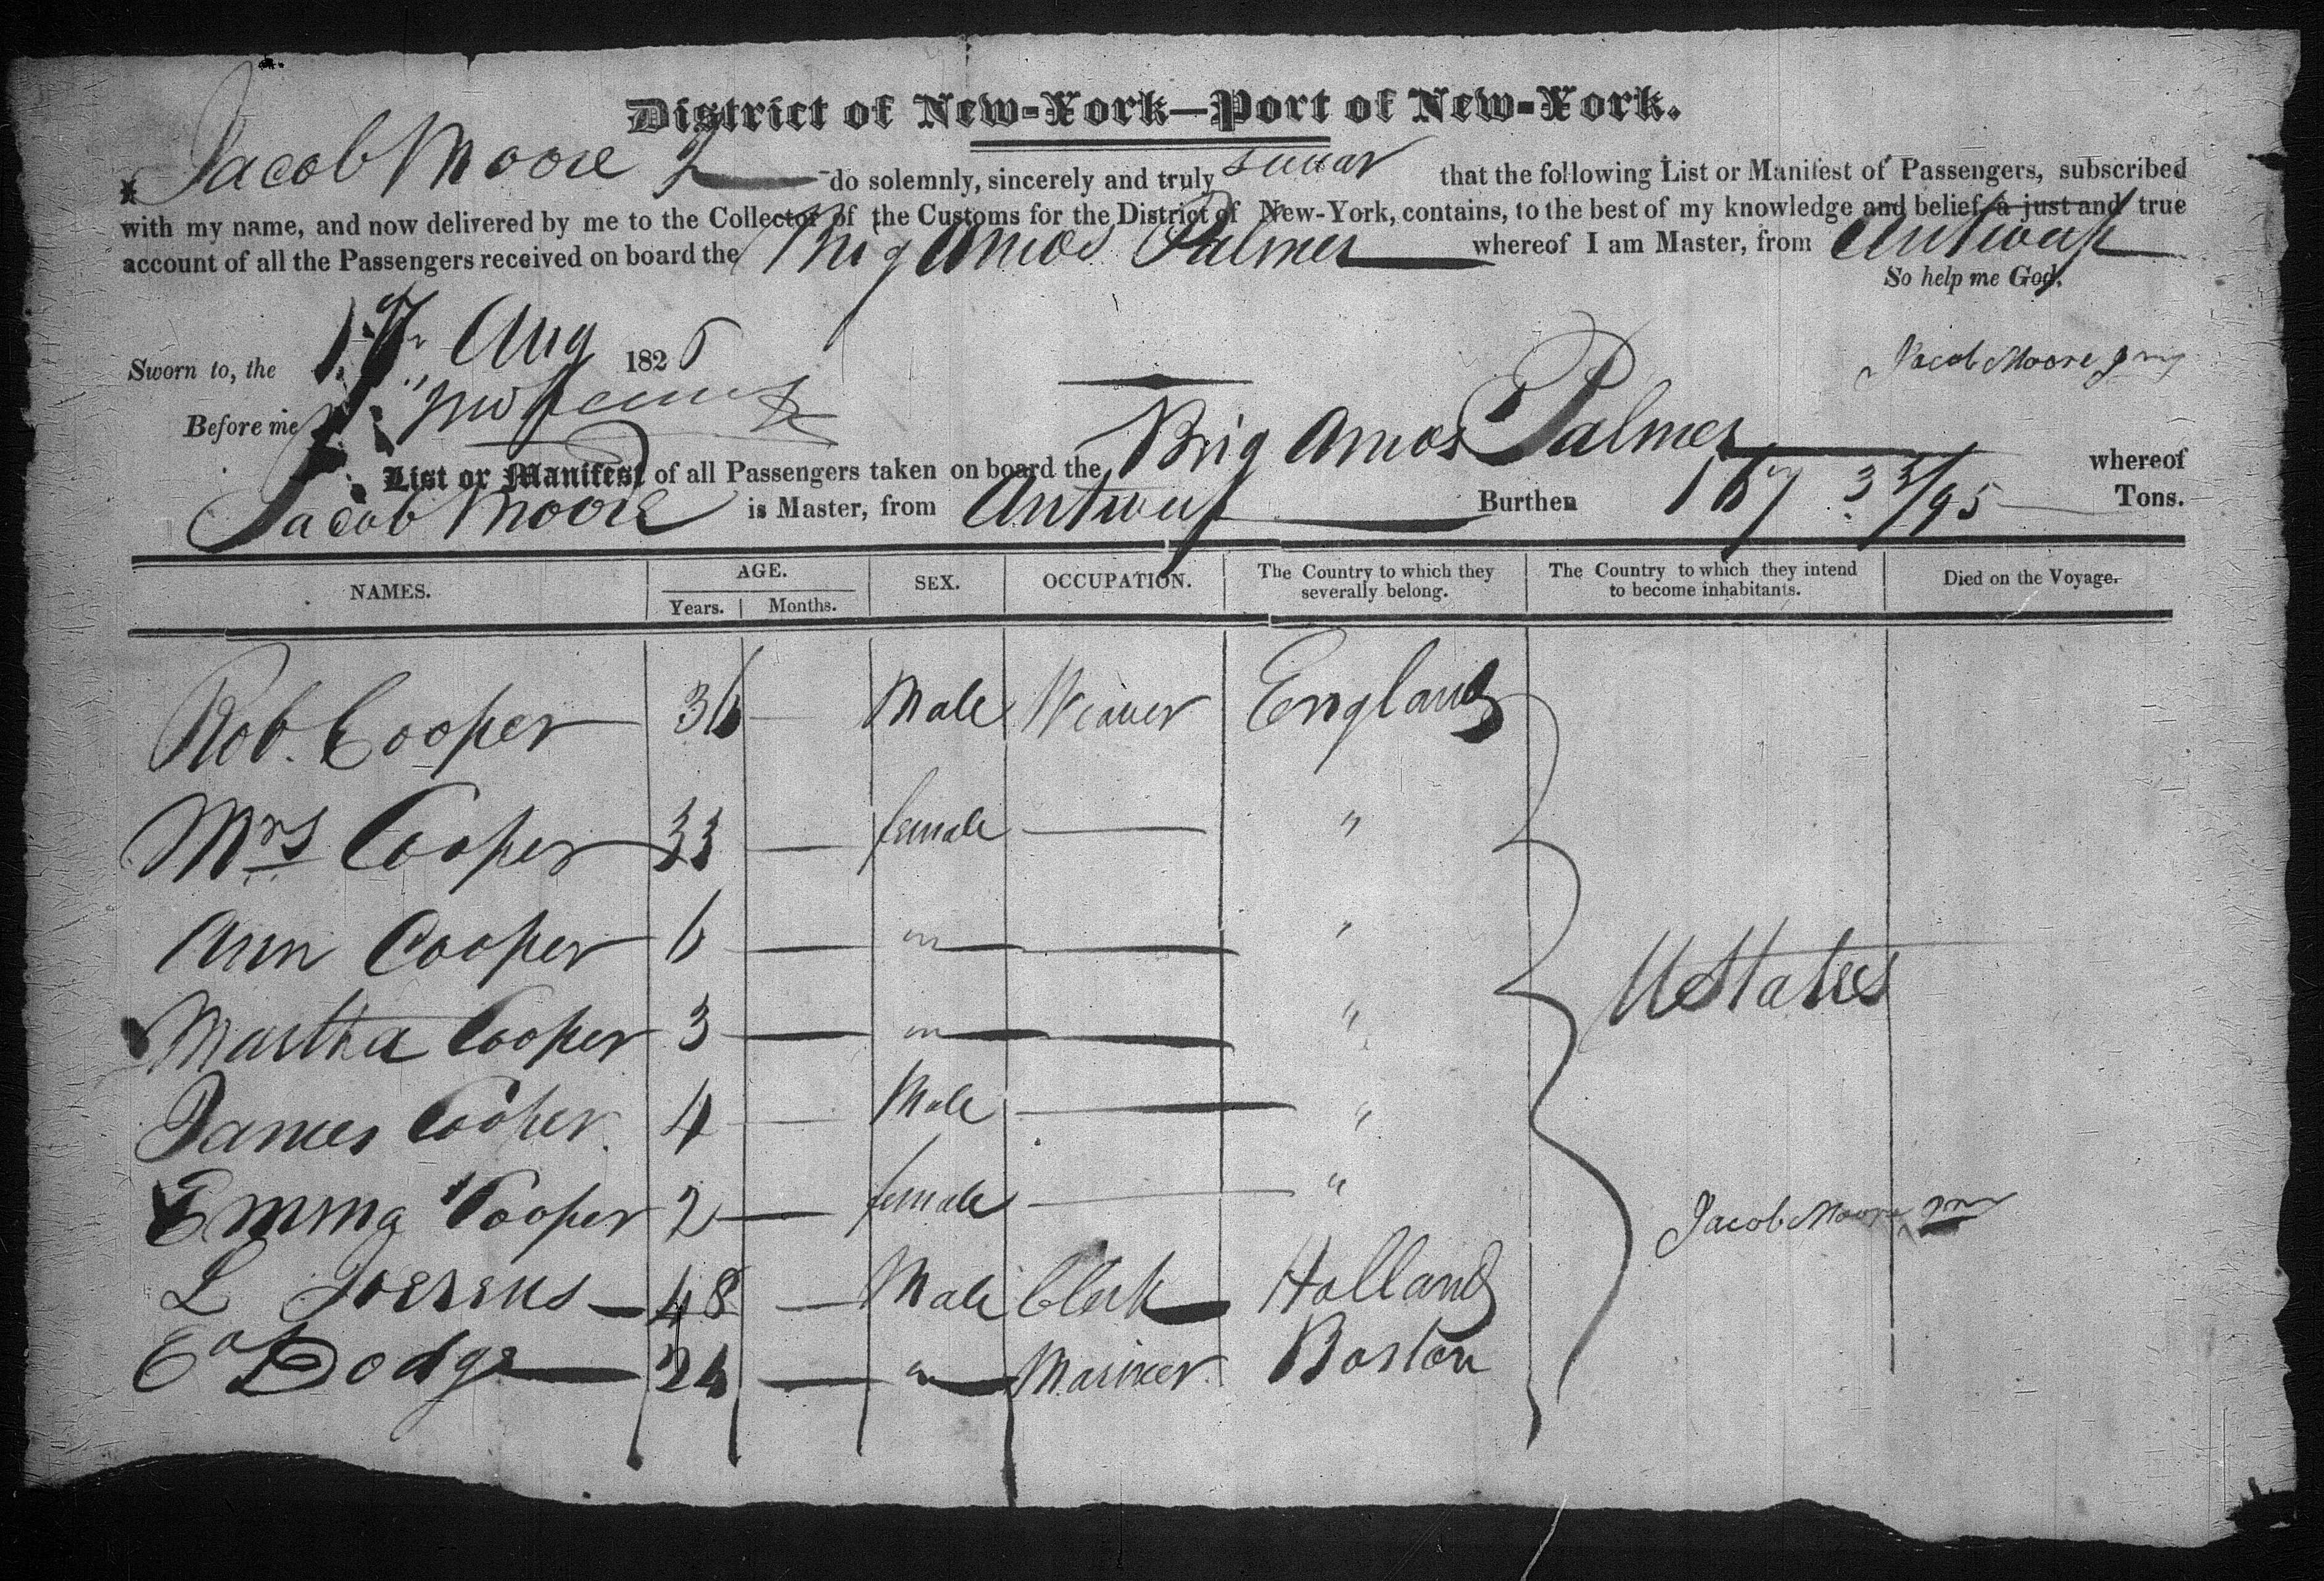 District of New-York—Port of New-York.
I Jacob Moore Jr do solemnly, sincerely and truly swear that the following List or Manifest of Passengers, subscribed
with my name, and now delivered by me to the Collector of the Customs for the District of New-York, contains, to the best of my knowledge and belief, a just and true
account of all the Passengers received on board the Brig Amos Palmer whereof I am Master, from Antwerp
So help me God.
Sworn to, the Aug 1826
Jacob Moore Jnr
Before me
List or Manifest of all Passengers taken on board the Brig Amos Palmer whereof
Jacob Moore is Master, from Antwerp Burthen 167 33/95 Tons.
NAMES. AGE. SEX. OCCUPATION. The Country to which they severally belong. The Country to which they intend to become inhabitants. Died on the Voyage.
Years. Months.
Rob. Cooper 36 — Male Weaver England
Mrs Cooper 33 — female — "
Ann Cooper 6 — " — "
Martha Cooper 3 — " — "
UStates
James Cooper 4 — Male — "
Emma Cooper 2 — female — "
Jacob Moore Jnr
L 48 — Male Clerk Holland
Dodge 26 — " Mariner Boston